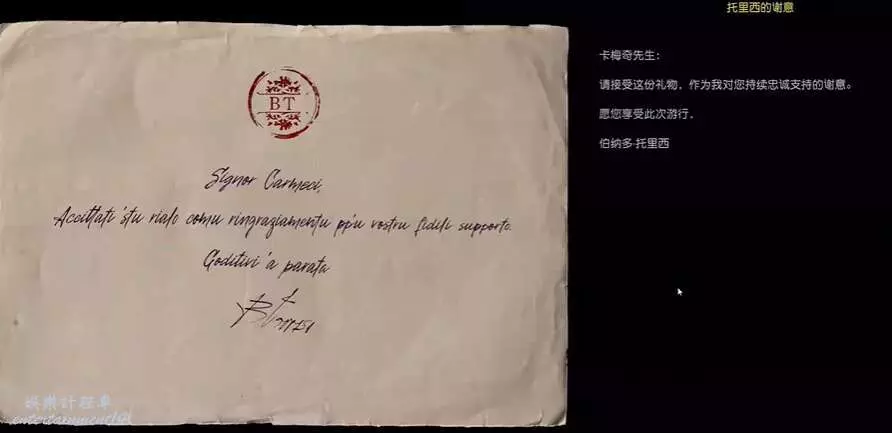 托里西的谢意
BT
Signor Carmeci,
Accittati 'stu rialo comu ringraziamentu ppu vostru fidili supporto.
Goditivi 'a parata
卡梅奇先生：
请接受这份礼物，作为我对您持续忠诚支持的谢意。
愿您享受此次游行，
伯纳多·托里西
娱乐计程车